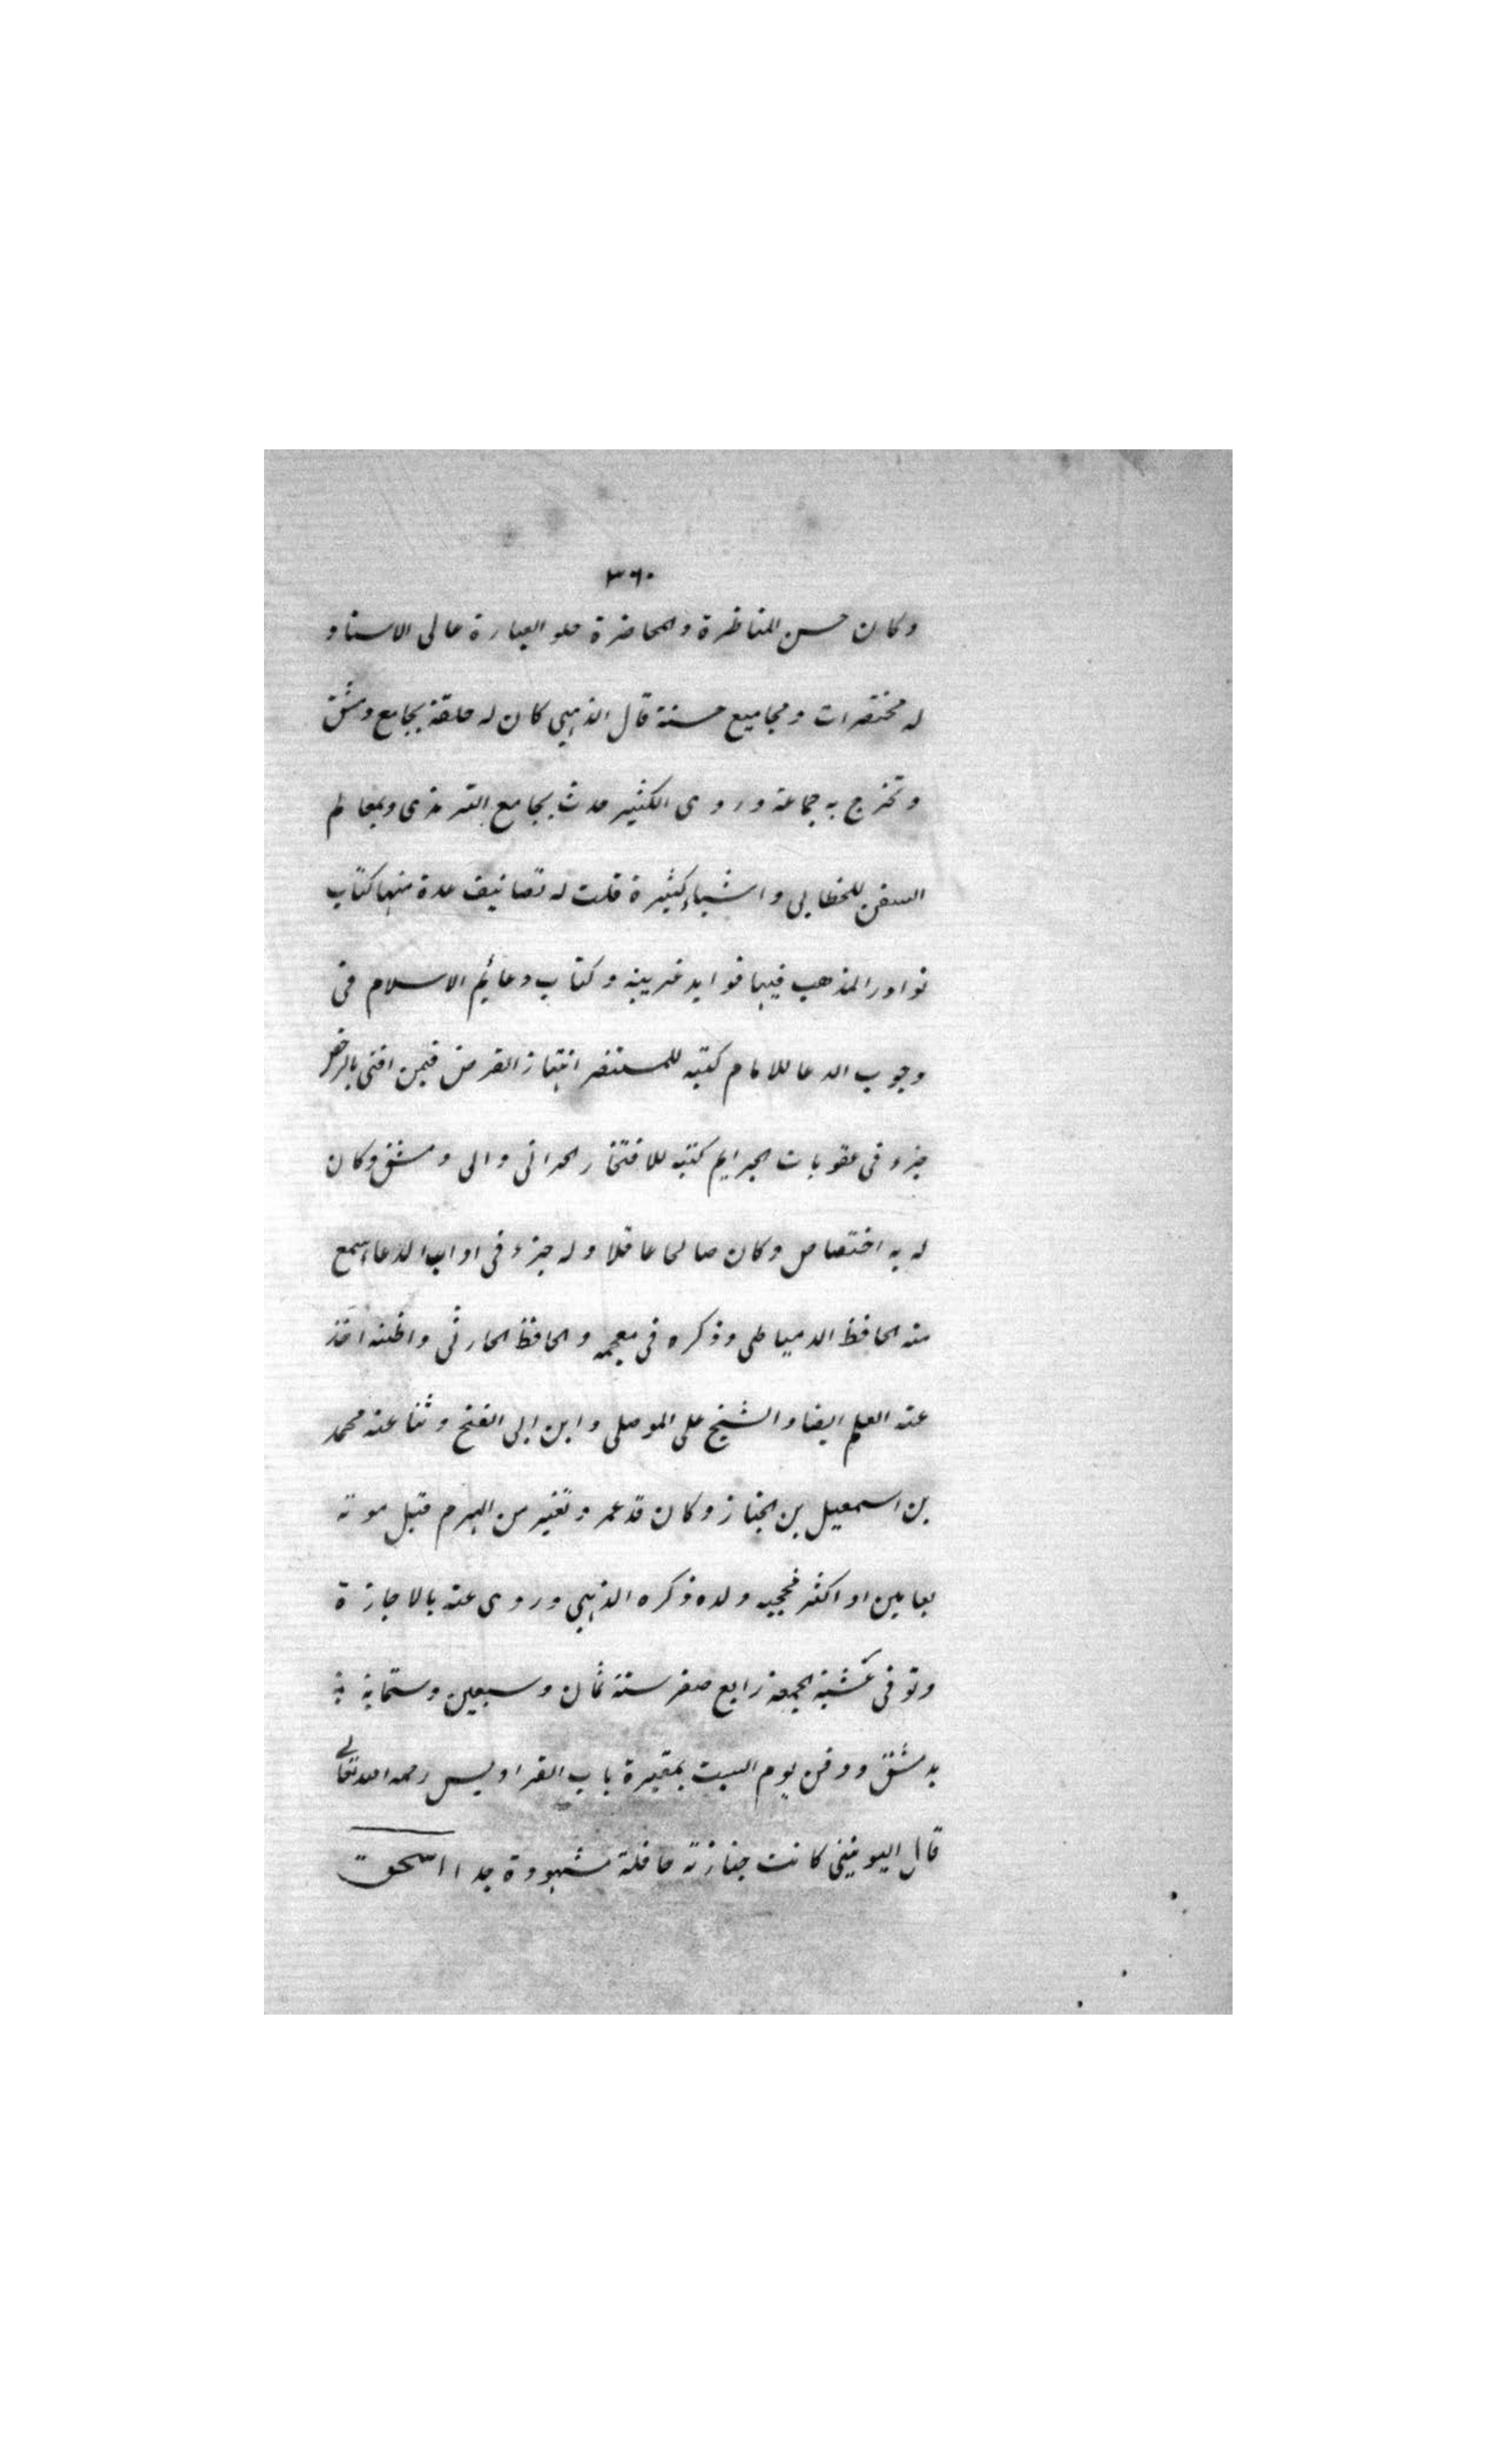 ٣٦٠
وكان حسن المناظرة والمحاضرة حلو العبارة عالى الاسناد
له مختصرات ومجاميع حسنة قال الذهبي كان له حلقة بجامع دمشق
وتخرج به جماعة وروى الكثير حدث بجامع الترمذى وبمعالم
السنن للخطابي واشياء كثيرة قلت له تصانيف عدة منها كتاب
نوادر المذهب فيها فوايد غريبة وكتاب دعائم الاسلام فى
وجوب الدعا للامام كتبه للمستنصر انتهاز الفرص فيمن افتى بالرخص
جزء فى عقوبات الجرايم كتبه للافتخار الحرانى والى دمشق وكان
له به اختصاص وكان صالحا عاقلا وله جزء فى اداب الدعا سمع
منه الحافظ الدمياطى وذكره فى معجمه والحافظ الحارثى واظنه اخذ
عنه العلم ايضا والشيخ على الموصلى وابن ابى الفتح وثنا عنه محمد
بن اسمعيل بن الخباز وكان قد عمر وتغير من الهرم قبل موته
بعامين او اكثر فحجبه ولده ذكره الذهبي وروى عنه بالاجازة
وتوفى عشية الجمعة رابع صفر سنة ثمان وسبعين وستماية
بدمشق ودفن يوم السبت بمقبرة باب الفراديس رحمه الله تعالى
قال اليونينى كانت جنازته حافلة مشهودة جدا اسحق